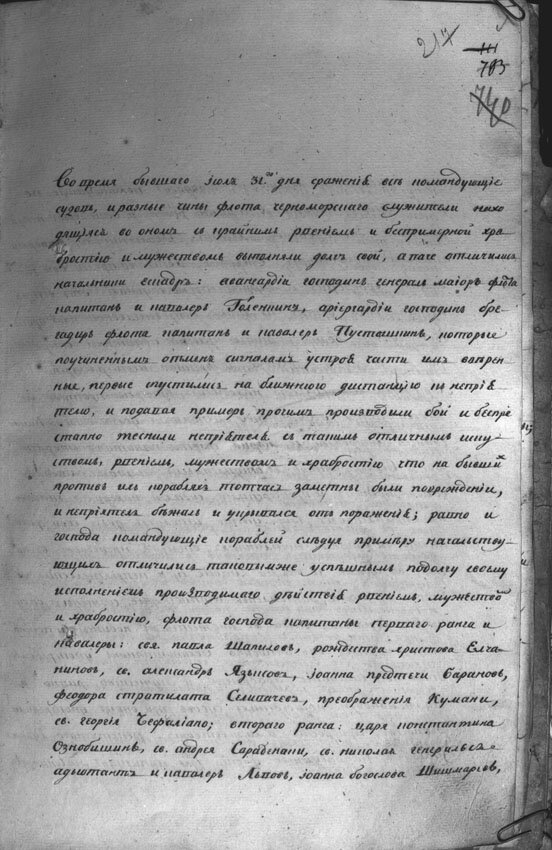 217
111
703
740
Во время бывшаго июля 31го дня сражение все командующие
судов, и разные чины флота черноморскаго служители нахо
дящиеся во оном с крайним рвением и беспримерной хра
бростию и мужеством выполняли долг свой, а паче отличились
начальники ескадр: авангардии господин генерал маиор флота
капитан и кавалер Голенкин, ариергардии господин бре
гадир флота капитан и кавалер Пустошкин, которые
по учиненным от меня сигналам устроя части им вверен
ные, первые спустились на ближную дистанцию к неприя
телю, и подавая пример прочим производили бой и беспре
станно теснили неприятеля с таким отличным иску
ством, рвением, мужеством и храбростию что на бывших
против их кораблях тотчас заметны были повреждении,
и неприятель бежал и укрывался от поражения; равно и
господа командующие кораблей следуя примеру начальству
ющих отличились таковым же успешным по долгу своему
исполнением производимаго действия рвением, мужеством
и храбростию, флота господа капитаны перваго ранга и
кавалеры: свя. павла Шапилов, рождества христова Елча
нинов, св. александра Языков, иоанна предтечи Баранов,
феодора стратилата Селивачев, преображения Кумани,
св. георгия Чефалиано; втораго ранга: царя константина
Ознобишин, св. андрея Сарандинаки, св. николая генеральс
адъютант и кавалер Львов, иоанна богослова Шишмарев,